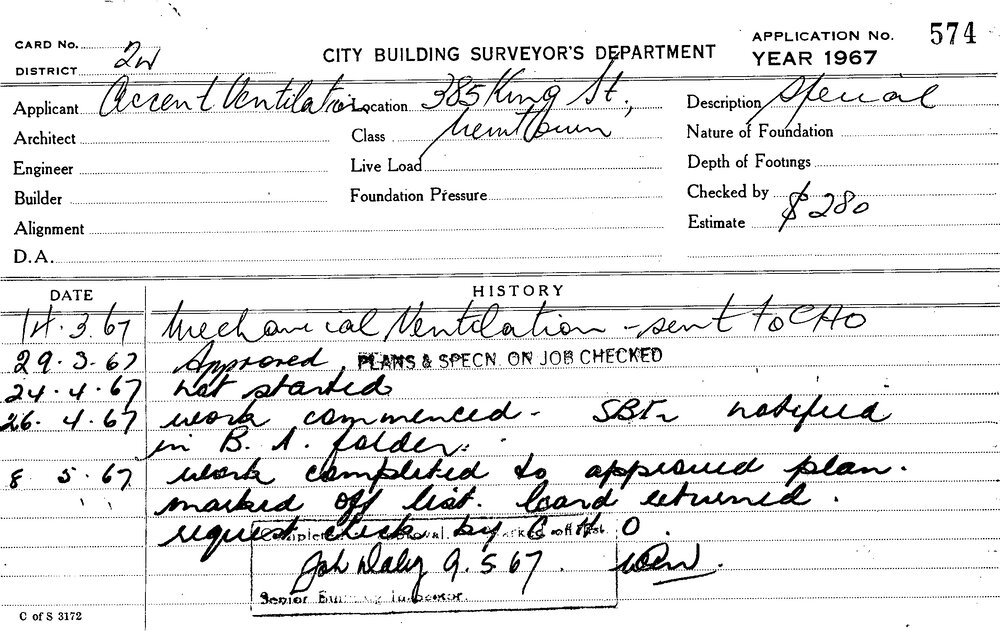 CARD No. 2W
DISTRICT
CITY BUILDING SURVEYOR'S DEPARTMENT
APPLICATION No. 574
YEAR 1967
Applicant Accent Ventilation Location 385 King St., Description Special
Architect Class Newtown Nature of Foundation
Engineer Live Load Depth of Footings
Builder Foundation Pressure Checked by
Alignment Estimate $280
D.A.
DATE HISTORY
14.3.67 Mechanical Ventilation - sent to CHO
29.3.67 Approved PLANS & SPECN. ON JOB CHECKED
24.4.67 not started
26.4.67 work commenced - notified
in B. A. folder.
8 5.67 work completed to approved plan.
marked off list. Card returned.
request check by C H O.
Joh Daly 9.5.67.
Senior Building Inspector.
C of S 3172